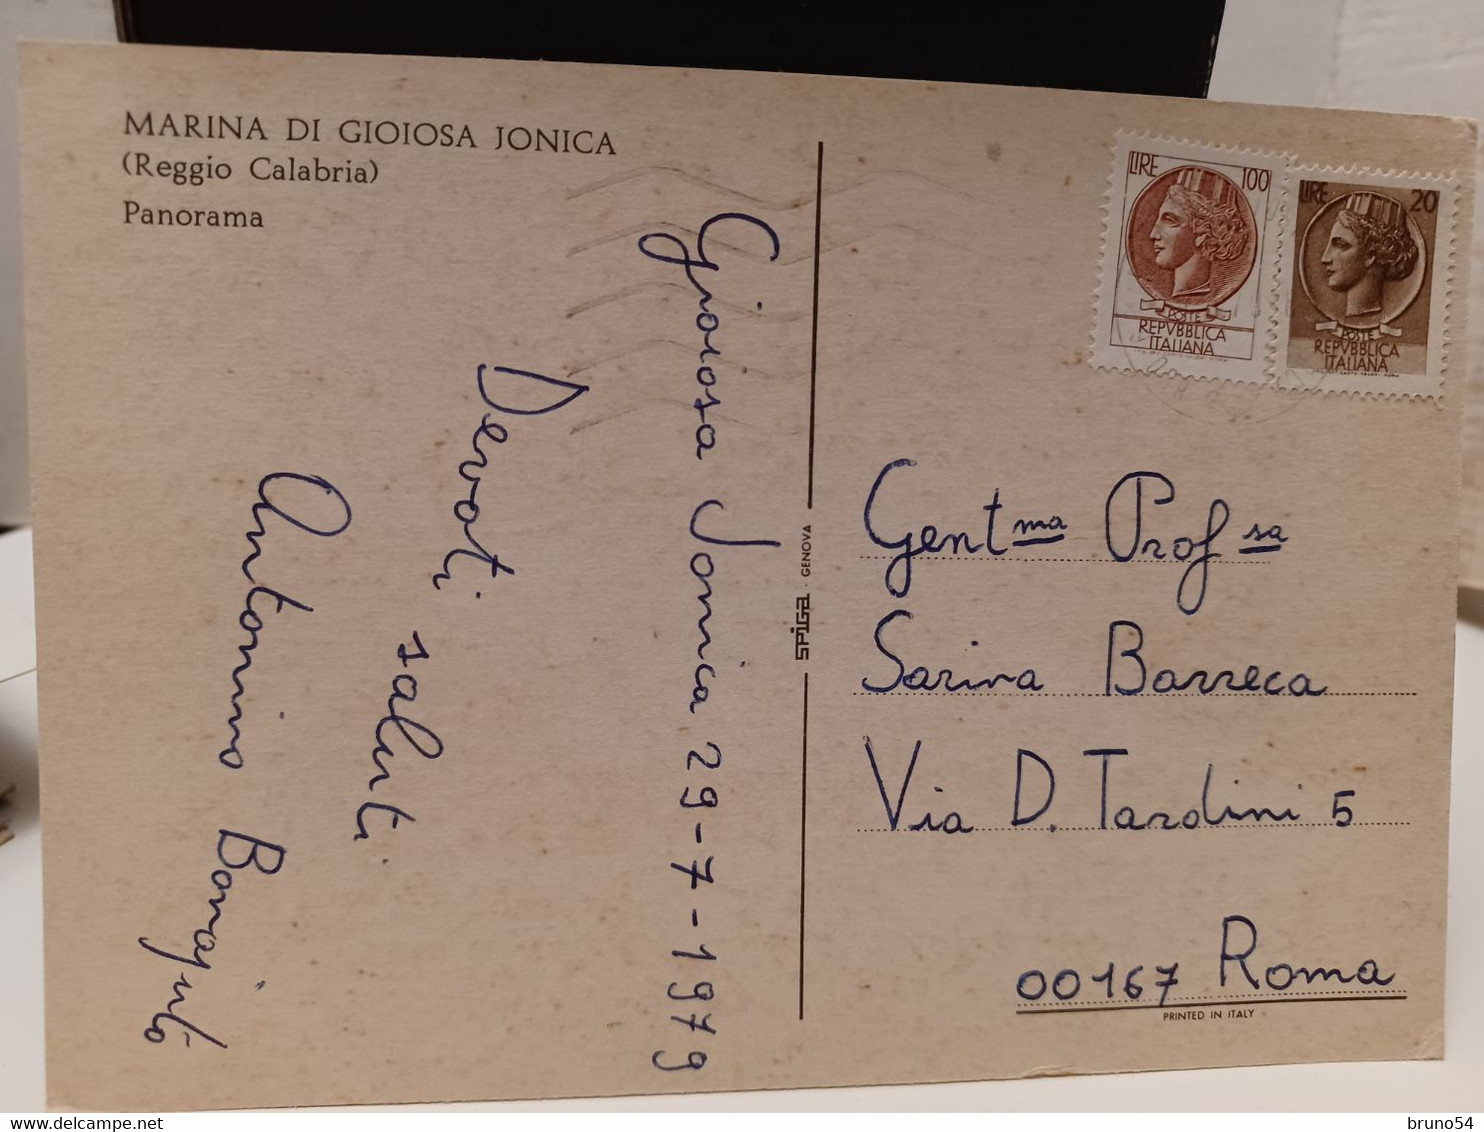 MARINA DI GIOIOSA JONICA
(Reggio Calabria)
Panorama
Gioiosa Jonica 29-7-1979
Devoti saluti
Antonino
SPIGA - GENOVA
LIRE 100
POSTE
REPVBBLICA
ITALIANA
LIRE 20
POSTE
REPVBBLICA
ITALIANA
Gentma Profsa
Sarina Barreca
Via D. Tardini 5
00167 Roma
PRINTED IN ITALY
bruno54